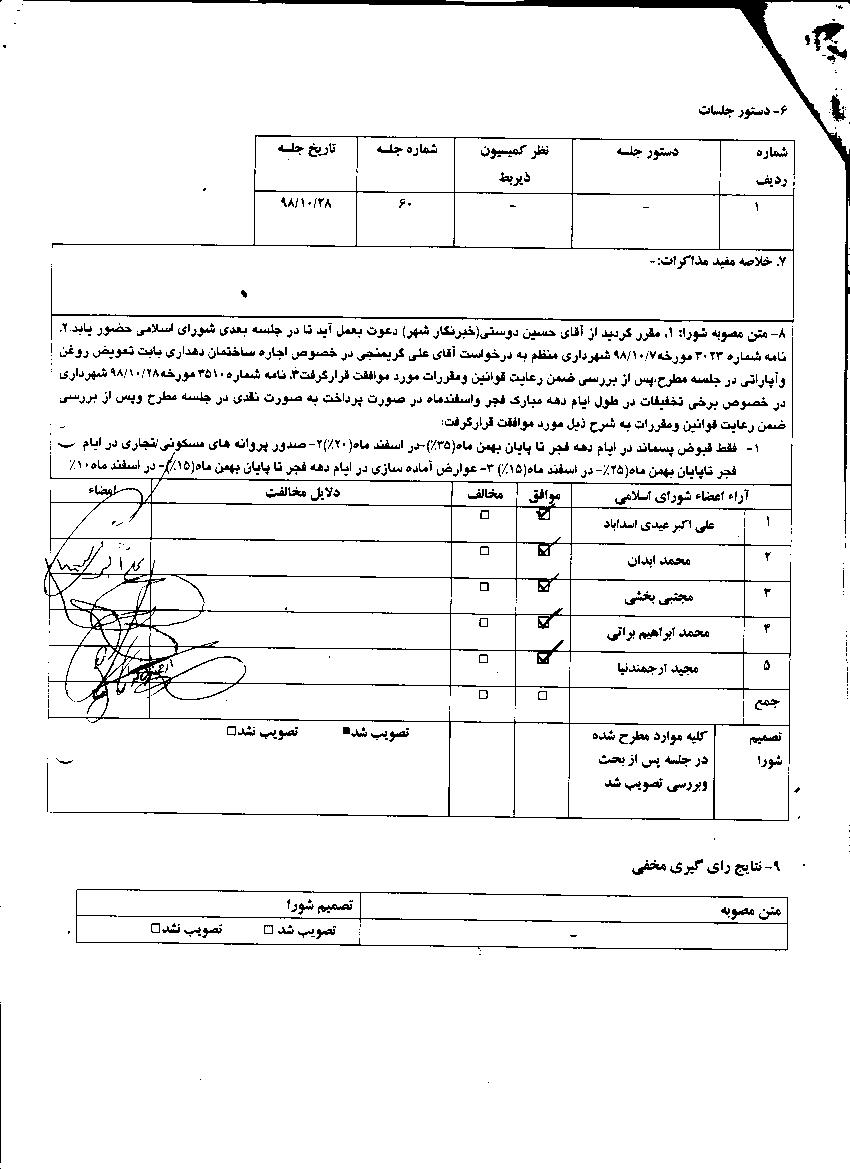 ۶- دستور جلسات
شماره ردیف	دستور جلسه	نظر کمیسیون ذیربط	شماره جلسه	تاریخ جلسه
۱	-	-	۶۰	۹۸/۱۰/۲۸
۷. خلاصه مفید مذاکرات:-
۸- متن مصوبه شورا: ۱. مقرر گردید از آقای حسین دوستی(خبرنگار شهر) دعوت بعمل آید تا در جلسه بعدی شورای اسلامی حضور یابد.۲.
نامه شماره ۳۰۲۳ مورخه ۹۸/۱۰/۷ شهرداری منظم به درخواست آقای علی گریمنجی در خصوص اجاره ساختمان دهداری بابت تعویض روغن
و آپاراتی در جلسه مطرح،پس از بررسی ضمن رعایت قوانین ومقررات مورد موافقت قرارگرفت۳. نامه شماره ۳۵۱۰ مورخه ۹۸/۱۰/۲۸ شهرداری
در خصوص برخی تخفیفات در طول ایام دهه مبارک فجر واسفندماه در صورت پرداخت به صورت نقدی در جلسه مطرح وپس از بررسی
ضمن رعایت قوانین ومقررات به شرح ذیل مورد موافقت قرارگرفت:
۱- فقط قبوض پسماند در ایام دهه فجر تا پایان بهمن ماه(۳۵٪)-در اسفند ماه(۲۰٪)۲- صدور پروانه های مسکونی/تجاری در ایام
فجر تاپایان بهمن ماه(۲۵٪- در اسفند ماه(۱۵٪) ۳- عوارض آماده سازی در ایام دهه فجر تا پایان بهمن ماه(۱۵٪)- در اسفند ماه۱۰٪
آراء اعضاء شورای اسلامی	موافق	مخالف	دلایل مخالفت	امضاء
۱	علی اکبر عیدی اسداباد	☑	☐
۲	محمد ابدان	☑	☐
۳	مجتبی بخشی	☑	☐
۴	محمد ابراهیم براتی	☑	☐
۵	مجید ارجمندنیا	☑	☐
جمع	☐	☐
تصمیم شورا	کلیه موارد مطرح شده در جلسه پس از بحث وبررسی تصویب شد	تصویب شد■	تصویب نشد☐
۹- نتایج رای گیری مخفی
متن مصوبه	تصمیم شورا
-	تصویب شد ☐	تصویب نشد☐